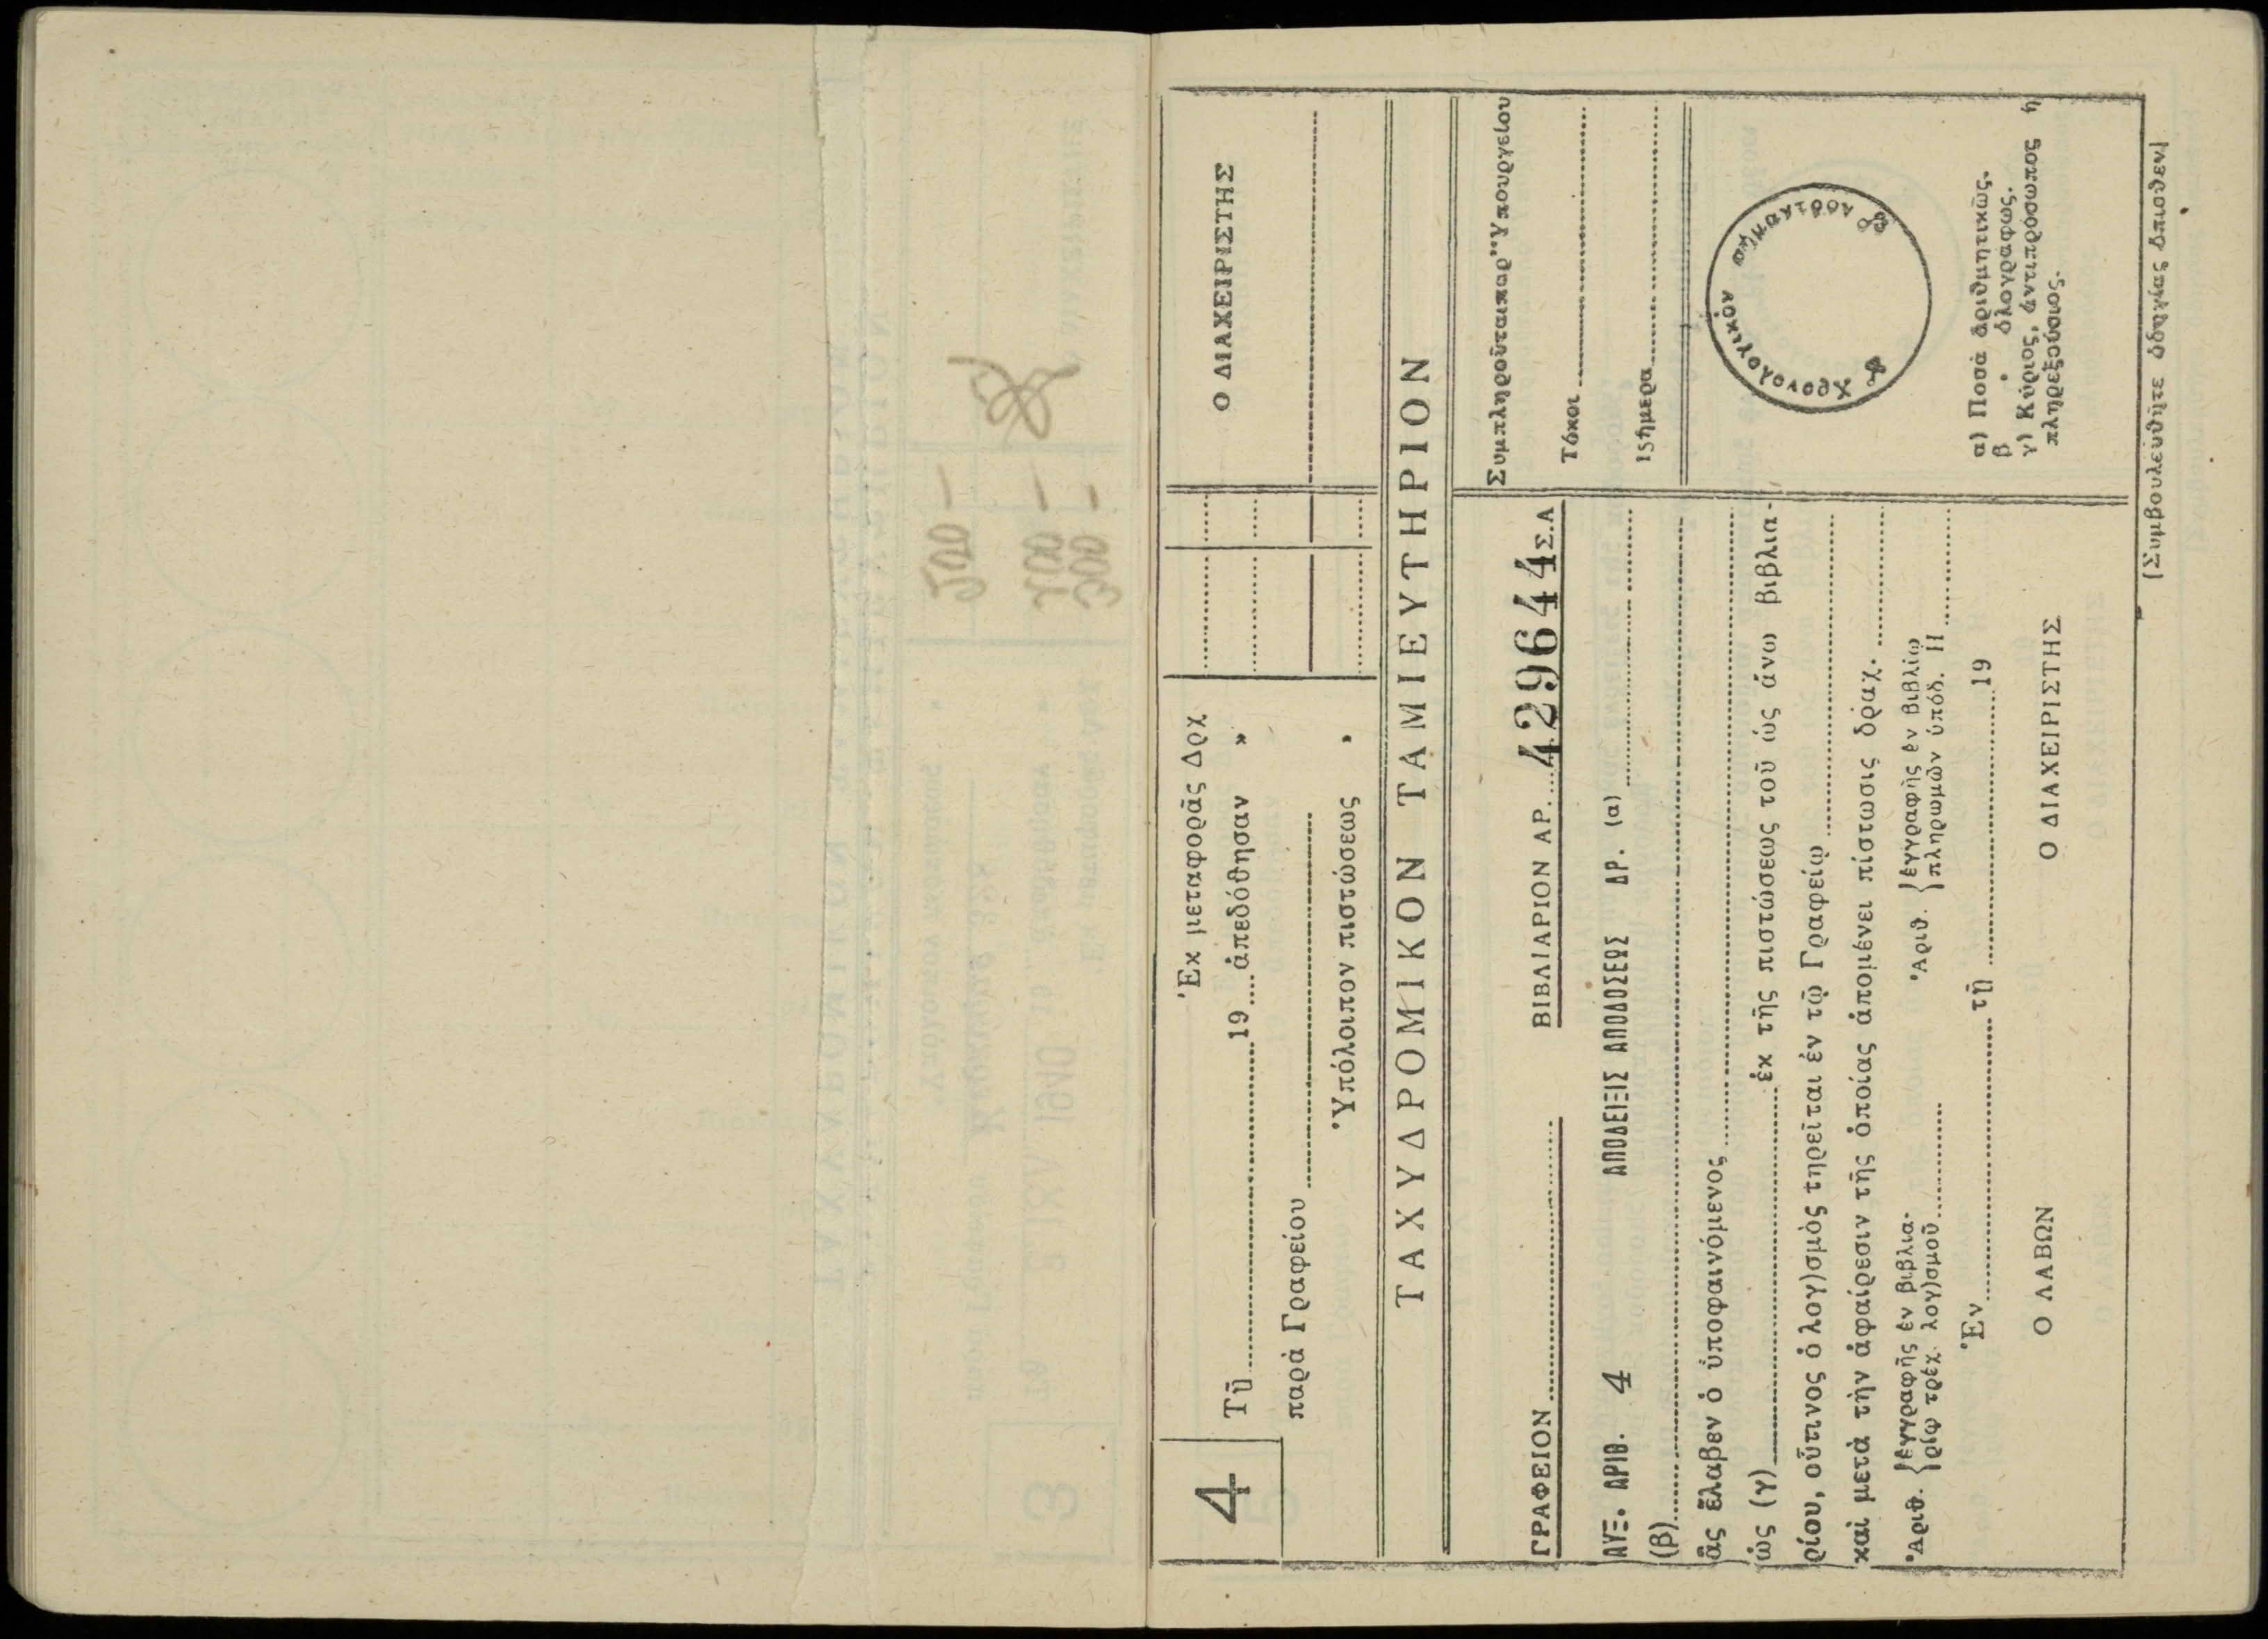 4
Ἐκ μεταφορᾶς Δρχ
Τῇ 19 ἀπεδόθησαν »
παρὰ Γραφείου
Ὑπόλοιπον πιστώσεως »
Ο ΔΙΑΧΕΙΡΙΣΤΗΣ
ΤΑΧΥΔΡΟΜΙΚΟΝ ΤΑΜΙΕΥΤΗΡΙΟΝ
ΓΡΑΦΕΙΟΝ ΒΙΒΛΙΑΡΙΟΝ ΑΡ. 429644 Σ.Λ
ΑΥΞ. ΑΡΙΘ. 4 ΑΠΟΔΕΙΞΙΣ ΑΠΟΔΟΣΕΩΣ ΔΡ. (α)
(β)
ἃς ἔλαβεν ὁ ὑποφαινόμενος
ὡς (γ) ἐκ τῆς πιστώσεως τοῦ ὡς ἄνω βιβλια-
ρίου, οὗτινος ὁ λογ)σμὸς τηρεῖται ἐν τῷ Γραφείῳ
καὶ μετὰ τὴν ἀφαίρεσιν τῆς ὁποίας ἀπομένει πίστωσις δραχ.
Ἀριθ. {ἐγγραφῆς ἐν βιβλια- Ἀριθ. {ἐγγραφὴς ἐν βιβλίῳ
ρίῳ τρέχ. λογ)σμοῦ πληρωμῶν ὑπόδ. Η
Ἐν τῇ 19
Ο ΛΑΒΩΝ Ο ΔΙΑΧΕΙΡΙΣΤΗΣ
Συμπληροῦται παρ' Ὑπουργείου
Τόκοι
15ήμερα
Χρονολογικὸν
α) Ποσὰ ἀριθμητικῶς.
β » ὁλογράφως.
γ) Κύριος, ἀντιπρόσωπος ἢ
πληρεξούσιος.
(Συμβουλευθῆτε ὁδηγίας ὄπισθεν)